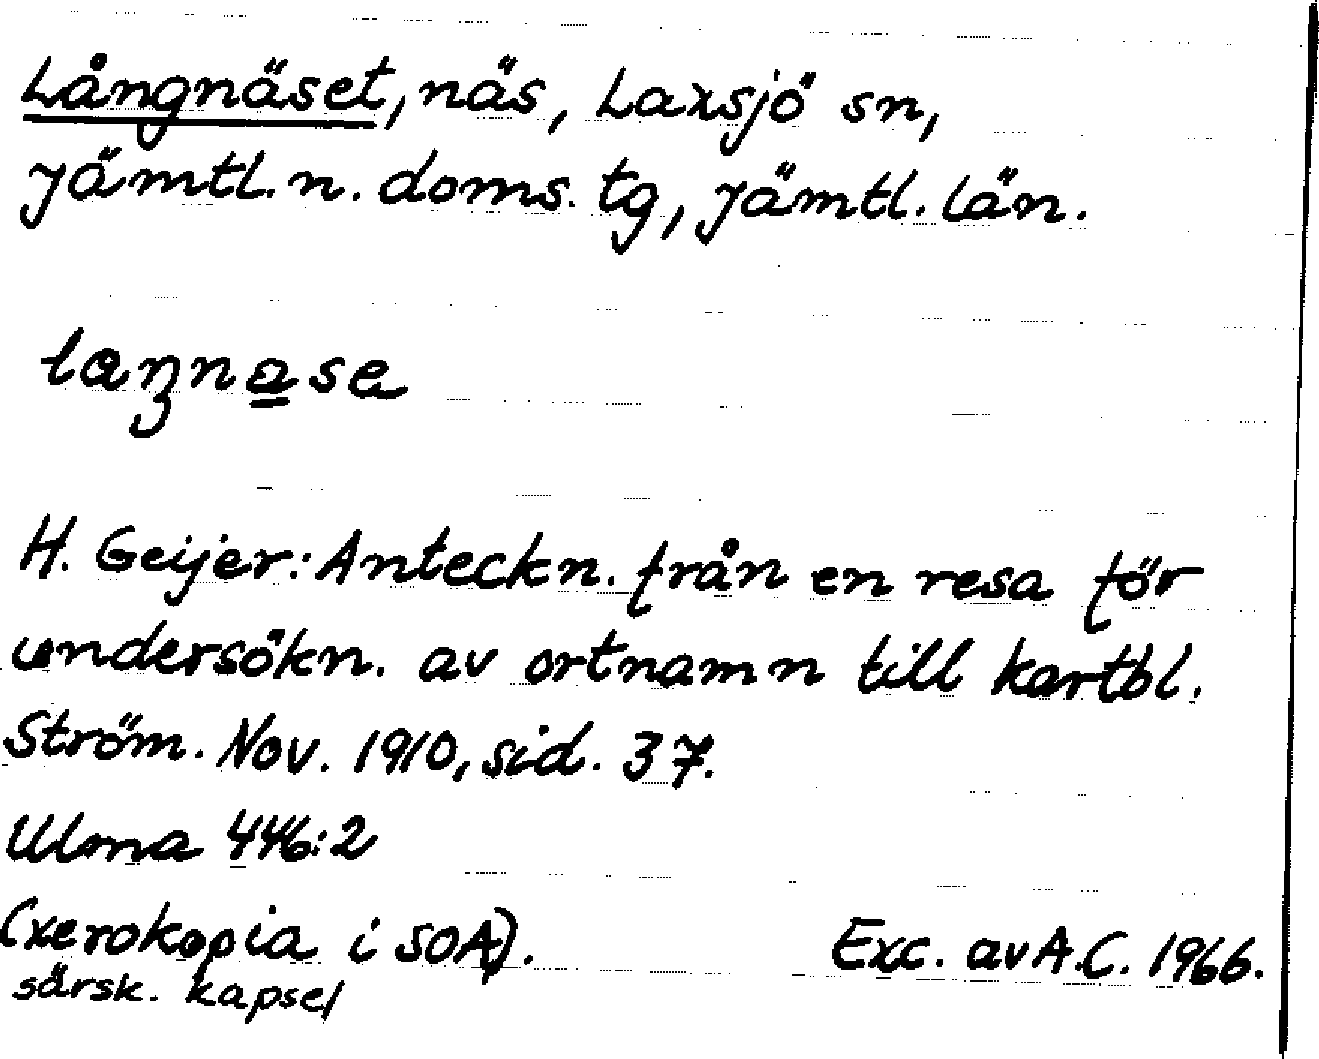 Långnäset, näs, Laxsjö sn,
Jämtl. n. doms. tg, Jämtl. län.
H. Geijer: Anteckn. från en resa för
undersökn. av ortnamn till kartbl.
Ström. Nov. 1910, sid. 37.
Ulma 446:2
(xerokopia i SOA).
särsk. kapsel
Exc. av A.C. 1966.